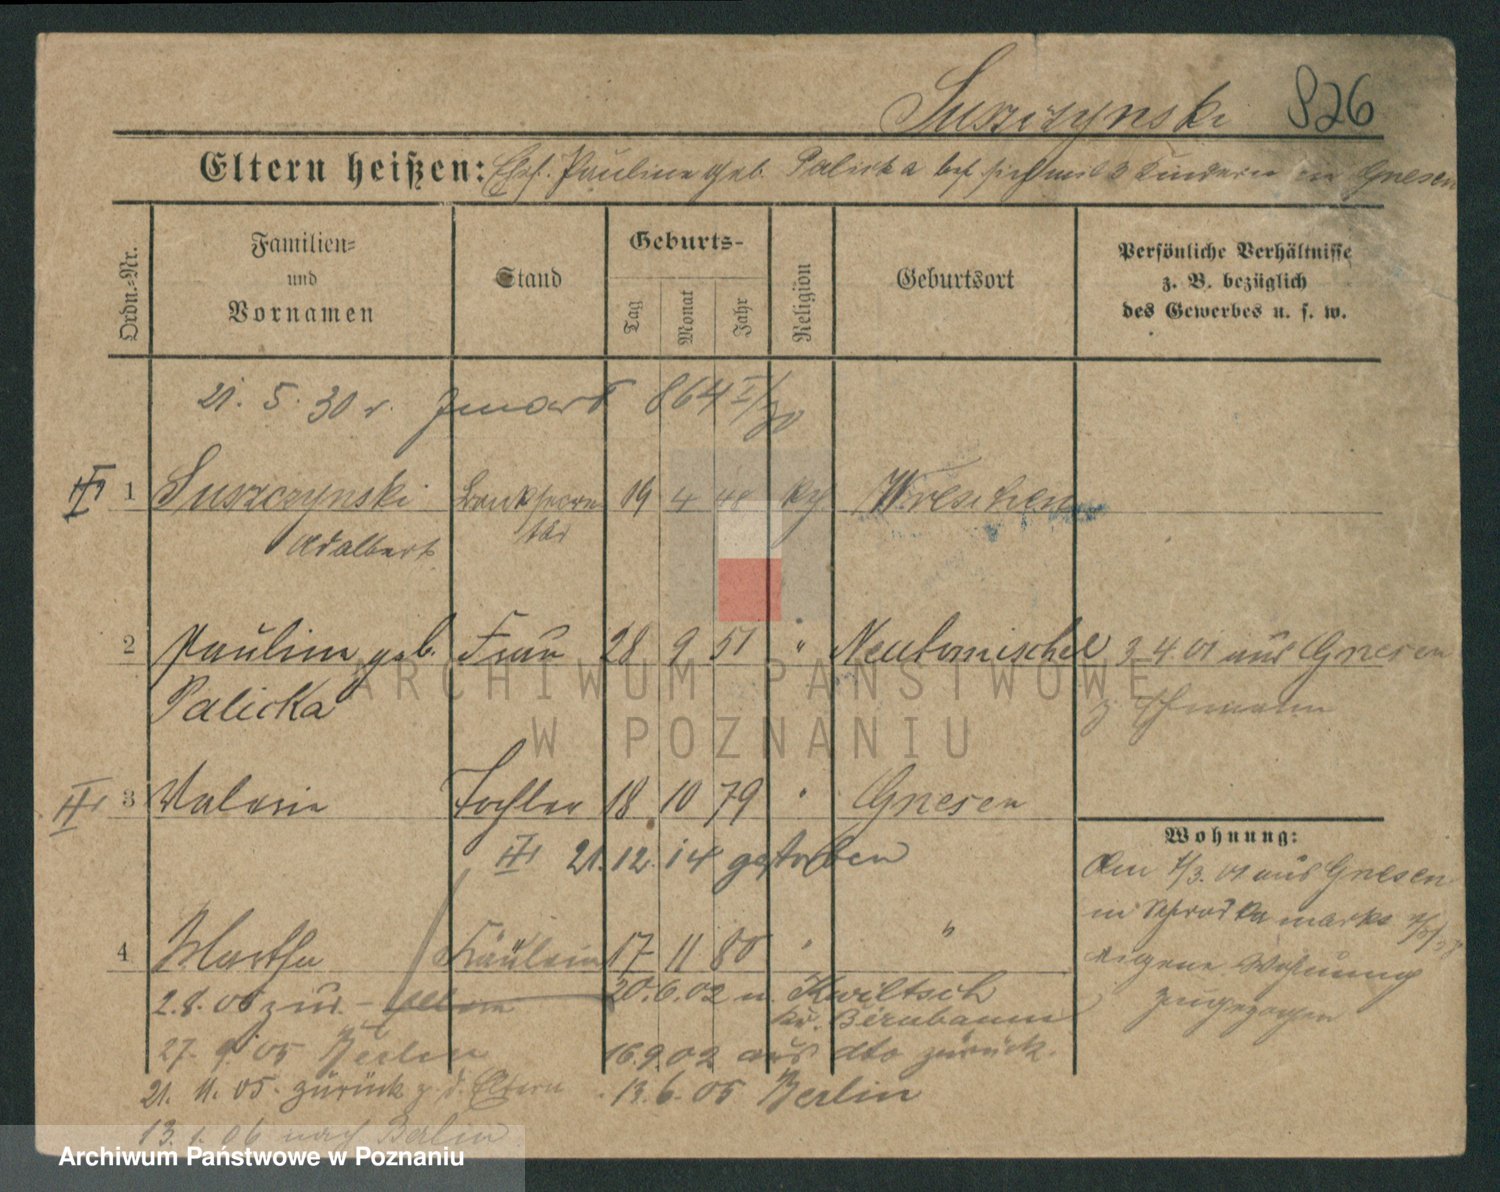 Suszczynski 826
Eltern heißen: Ehef. Pauline geb. Palicka bef. sich mit 3 Kindern in Gnesen
Ordn.-Nr.
Familien-
und
Vornamen
Stand
Geburts-
Tag
Monat
Jahr
Religion
Geburtsort
Persönliche Verhältnisse
z. B. bezüglich
des Gewerbes u. s. w.
21. 5. 30 864 I/30
1 Suszczynski 19 4 48 Wreschen
Adalbert
2 Pauline geb. Frau 28 9 51 " Neutomischel 3.4.01 aus Gnesen
Palicka z. Ehemann
3 Valerie Tochter 18 10 79 " Gnesen
21.12.14 gestorben
Wohnung:
Am 7/3. 01 aus Gnesen
in Schrodkamarkt
eigene Wohnung
zugezogen
4 Martha Fräulein 17 11 80 " "
2.8.05 zur. 20.6.02 n. Kwiltsch
Kr. Birnbaum
27. 9. 05 Berlin 16.9.02 aus dto zurück.
21. 11. 05. zurück z. d. Eltern 13. 6. 05 Berlin
13. 1. 06 nach Berlin
ARCHIWUM PAŃSTWOWE
W POZNANIU
Archiwum Państwowe w Poznaniu